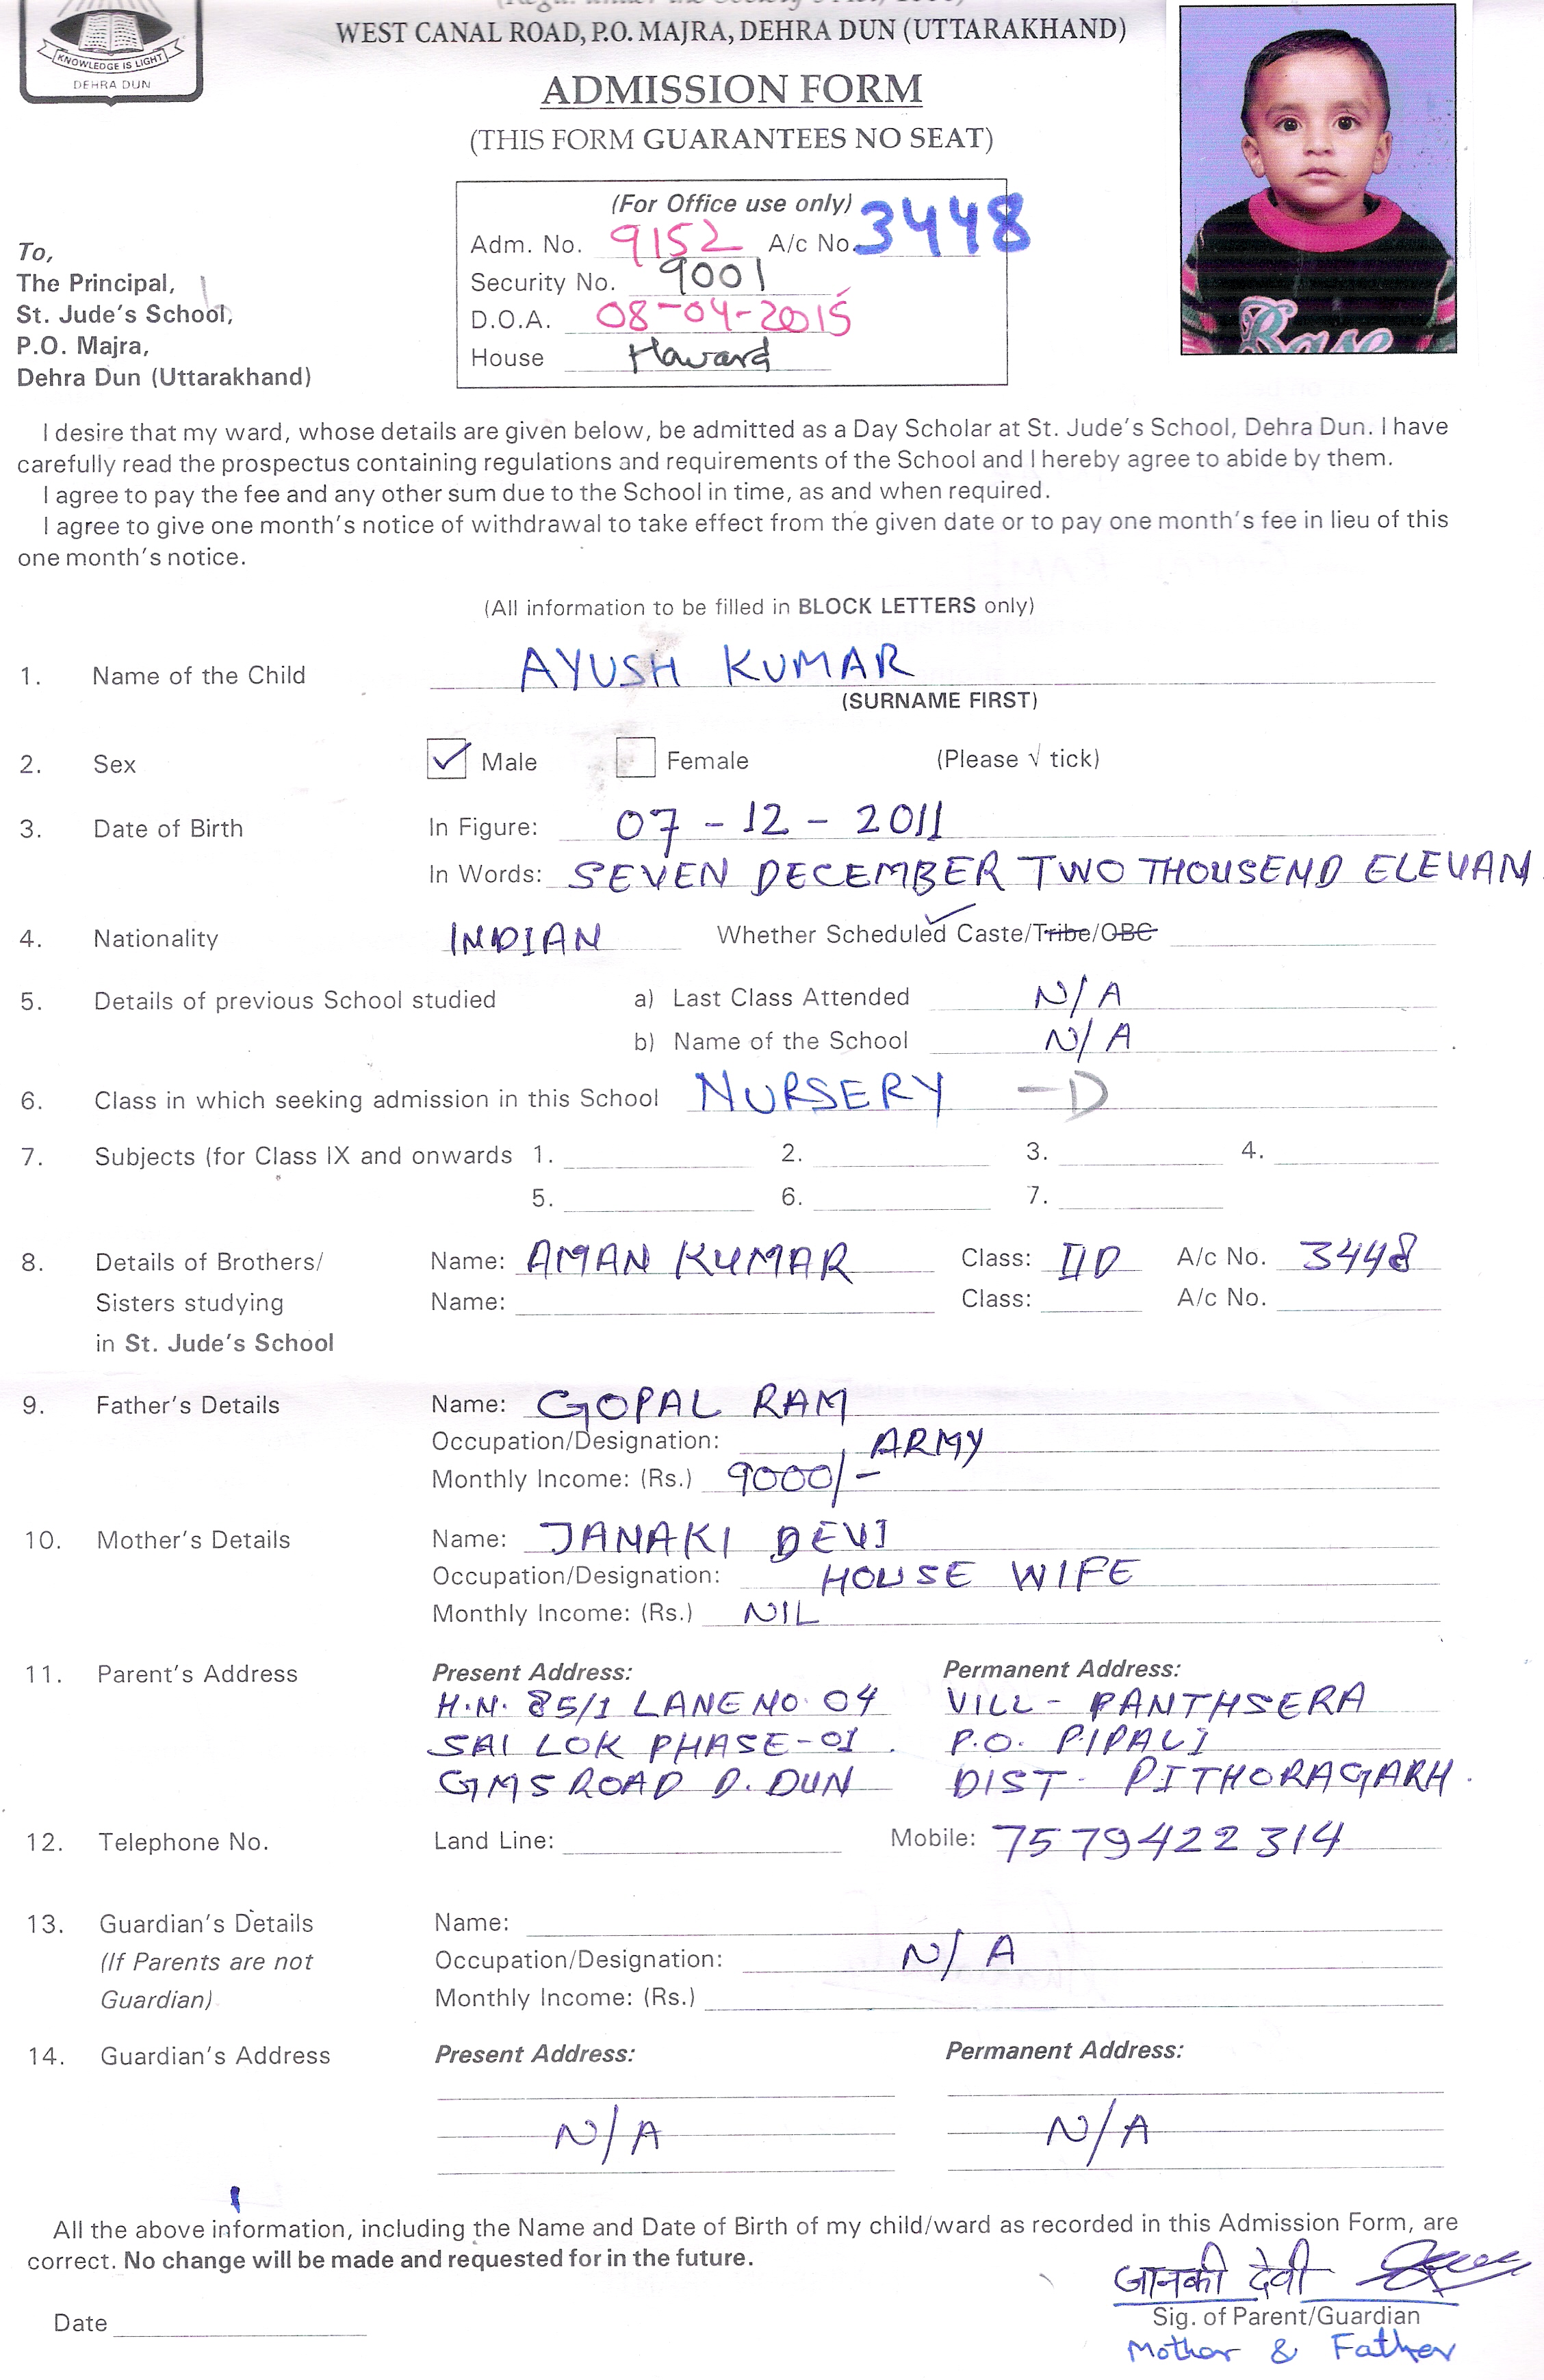 KNOWLEDGE IS LIGHT
DEHRA DUN
WEST CANAL ROAD, P.O. MAJRA, DEHRA DUN (UTTARAKHAND)
ADMISSION FORM
(THIS FORM GUARANTEES NO SEAT)
(For Office use only)
Adm. No. 9152 A/c No. 3448
Security No. 9001
D.O.A. 08-04-2015
House Howard
To,
The Principal,
St. Jude's School,
P.O. Majra,
Dehra Dun (Uttarakhand)
I desire that my ward, whose details are given below, be admitted as a Day Scholar at St. Jude's School, Dehra Dun. I have
carefully read the prospectus containing regulations and requirements of the School and I hereby agree to abide by them.
I agree to pay the fee and any other sum due to the School in time, as and when required.
I agree to give one month's notice of withdrawal to take effect from the given date or to pay one month's fee in lieu of this
one month's notice.
(All information to be filled in BLOCK LETTERS only)
1. Name of the Child AYUSH KUMAR
(SURNAME FIRST)
2. Sex ✓ Male Female (Please √ tick)
3. Date of Birth In Figure: 07 - 12 - 2011
In Words: SEVEN DECEMBER TWO THOUSEND ELEVAN
4. Nationality INDIAN Whether Scheduled Caste/Tribe/OBC
5. Details of previous School studied a) Last Class Attended N/A
b) Name of the School N/A
6. Class in which seeking admission in this School NURSERY - D
7. Subjects (for Class IX and onwards 1. 2. 3. 4.
5. 6. 7.
8. Details of Brothers/ Name: AMAN KUMAR Class: IID A/c No. 3448
Sisters studying Name: Class: A/c No.
in St. Jude's School
9. Father's Details Name: GOPAL RAM
Occupation/Designation: ARMY
Monthly Income: (Rs.) 9000/-
10. Mother's Details Name: JANAKI DEVI
Occupation/Designation: HOUSE WIFE
Monthly Income: (Rs.) NIL
11. Parent's Address Present Address: Permanent Address:
H.N. 85/1 LANE NO. 04 VILL - PANTHSERA
SAI LOK PHASE-01. P.O. PIPALI
GMS ROAD D. DUN DIST - PITHORAGARH.
12. Telephone No. Land Line: Mobile: 7579422314
13. Guardian's Details Name:
(If Parents are not Occupation/Designation: N/A
Guardian) Monthly Income: (Rs.)
14. Guardian's Address Present Address: Permanent Address:
N/A N/A
All the above information, including the Name and Date of Birth of my child/ward as recorded in this Admission Form, are
correct. No change will be made and requested for in the future.
जानकी देवी
Date Sig. of Parent/Guardian
Mother & Father